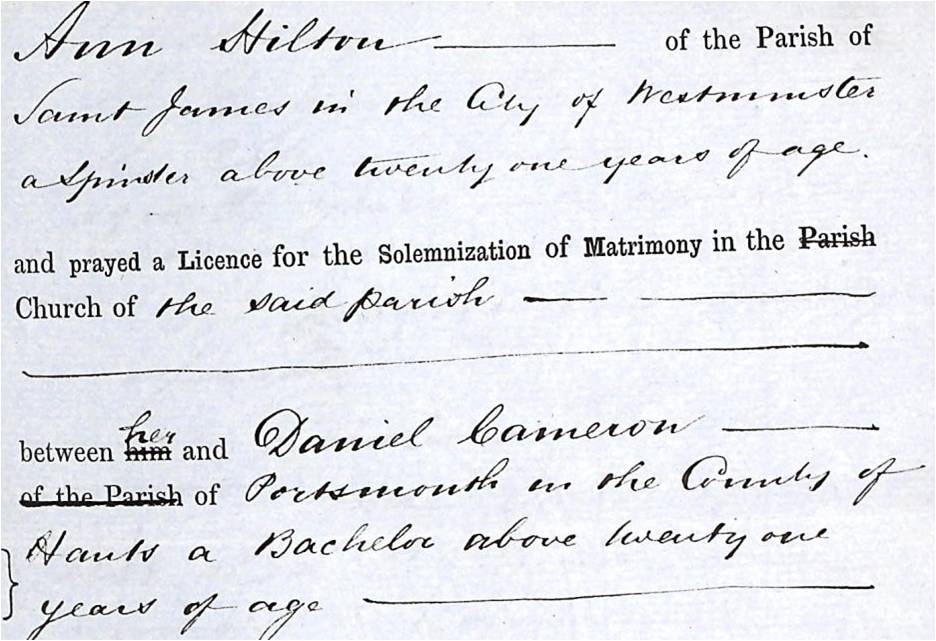 Ann Hilton of the Parish of
Saint James in the City of Westminster
a Spinster above twenty one years of age.
and prayed a Licence for the Solemnization of Matrimony in the Parish
Church of the said parish
her
between him and Daniel Cameron
of the Parish of Portsmouth in the County of
Hants a Bachelor above twenty one
years of age